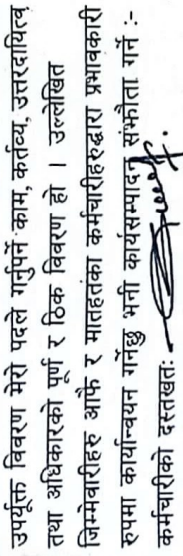 उपर्यूक्त विवरण मेरो पदले गर्नुपर्ने काम, कर्तव्य, उत्तरदायित्व
तथा अधिकारको पूर्ण र ठिक विवरण हो । उल्लेखित
जिम्मेवारीहरु आफै र मातहतका कर्मचारीहरुद्वारा प्रभावकारी
रुपमा कार्यान्वयन गर्नेछु भनी कार्यसम्पादन संझौता गर्ने :-
कर्मचारीको दस्तखतः